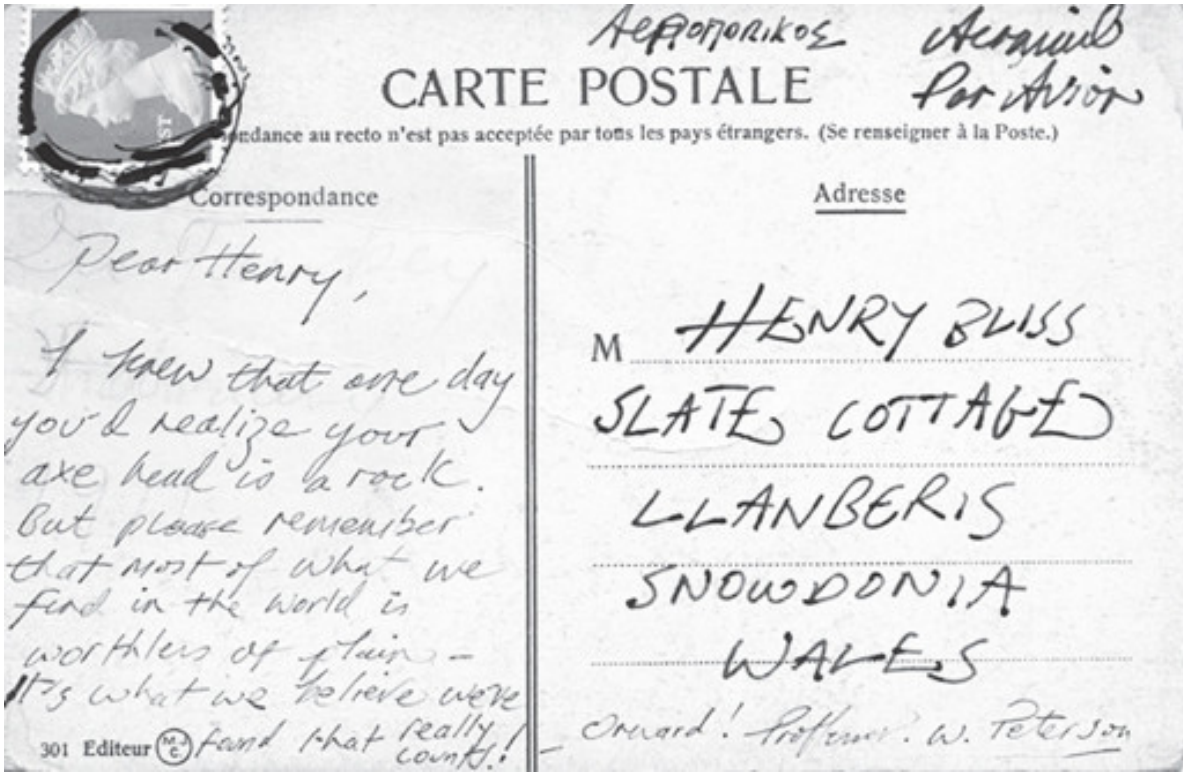 Αεροπορικος
Aeromail
Par Avion
CARTE POSTALE
ondance au recto n'est pas acceptée par tous les pays étrangers. (Se renseigner à la Poste.)
Correspondance
Adresse
Dear Henry,
I knew that one day
you'd realize your
axe head is a rock.
But please remember
that most of what we
find in the world is
worthless or plain –
It's what we believe we've
found that really
counts!
M HENRY BLISS
SLATE COTTAGE
LLANBERIS
SNOWDONIA
WALES
Onward! Professor. W. Peterson
301 Editeur